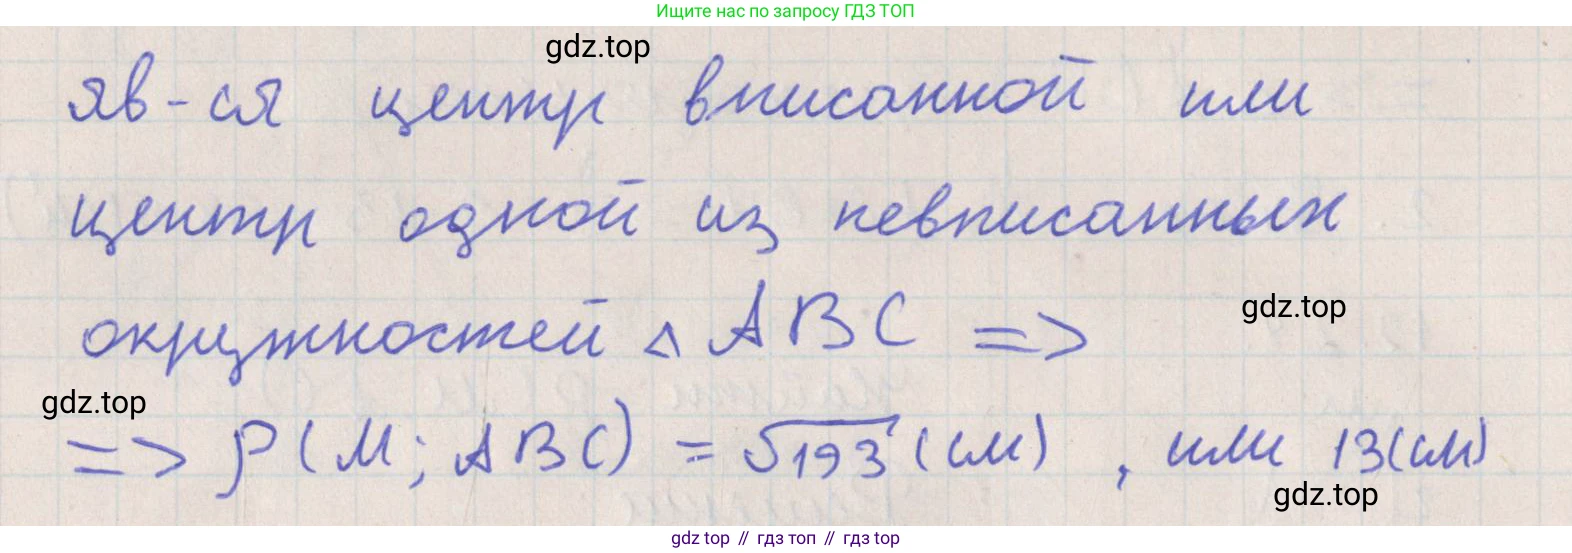 Ищите нас по запросу ГДЗ ТОП
gdz.top
яв-ся центр вписанной или
центр одной из невписанных
окружностей △ ABC =>
gdz.top
gdz.top
=> ρ(M; ABC) = √193 (см), или 13(см)
gdz.top
gdz.top // гдз топ // гдз top